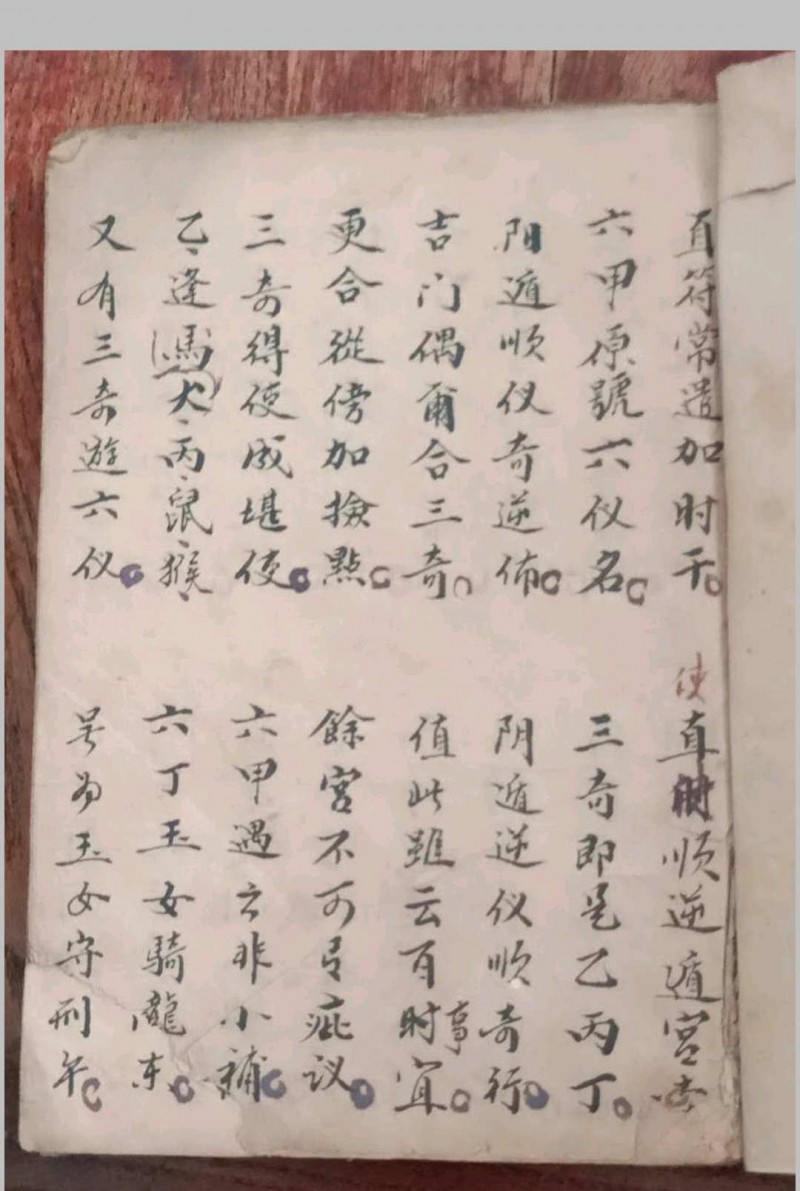 直符常遣加时干。使直时顺逆遁宫
六甲原號六仪名。三奇即是乙丙丁。
阳遁顺仪奇逆佈。阴遁逆仪顺奇行。
吉门偶爾合三奇。值此雖云百时事宜。
更合從傍加撿點。餘宮不可有疵议。
三奇得使成堪使。六甲遇之非小補。
乙逢馬犬丙鼠猴 六丁玉女騎龍
又有三奇遊六仪。号为玉女守刑